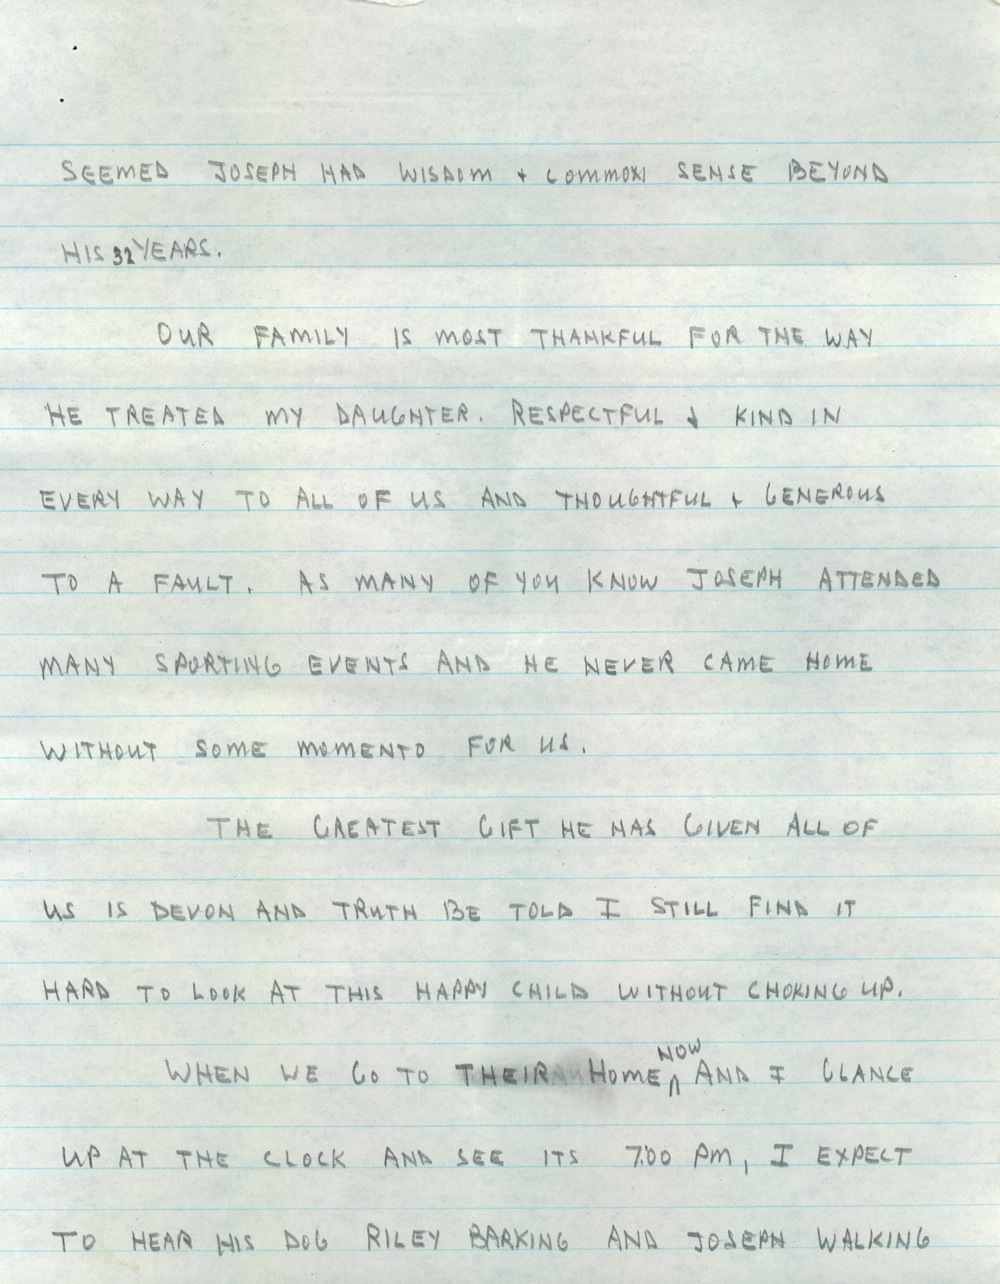 SEEMED JOSEPH HAD WISDOM + COMMON SENSE BEYOND
HIS 32 YEARS.
OUR FAMILY IS MOST THANKFUL FOR THE WAY
HE TREATED MY DAUGHTER. RESPECTFUL & KIND IN
EVERY WAY TO ALL OF US AND THOUGHTFUL + GENEROUS
TO A FAULT. AS MANY OF YOU KNOW JOSEPH ATTENDED
MANY SPORTING EVENTS AND HE NEVER CAME HOME
WITHOUT SOME MOMENTO FOR US.
THE GREATEST GIFT HE HAS GIVEN ALL OF
US IS DEVON AND TRUTH BE TOLD I STILL FIND IT
HARD TO LOOK AT THIS HAPPY CHILD WITHOUT CHOKING UP.
WHEN WE GO TO THEIR HOME NOW AND I GLANCE
UP AT THE CLOCK AND SEE ITS 7:00 PM, I EXPECT
TO HEAR HIS DOG RILEY BARKING AND JOSEPH WALKING